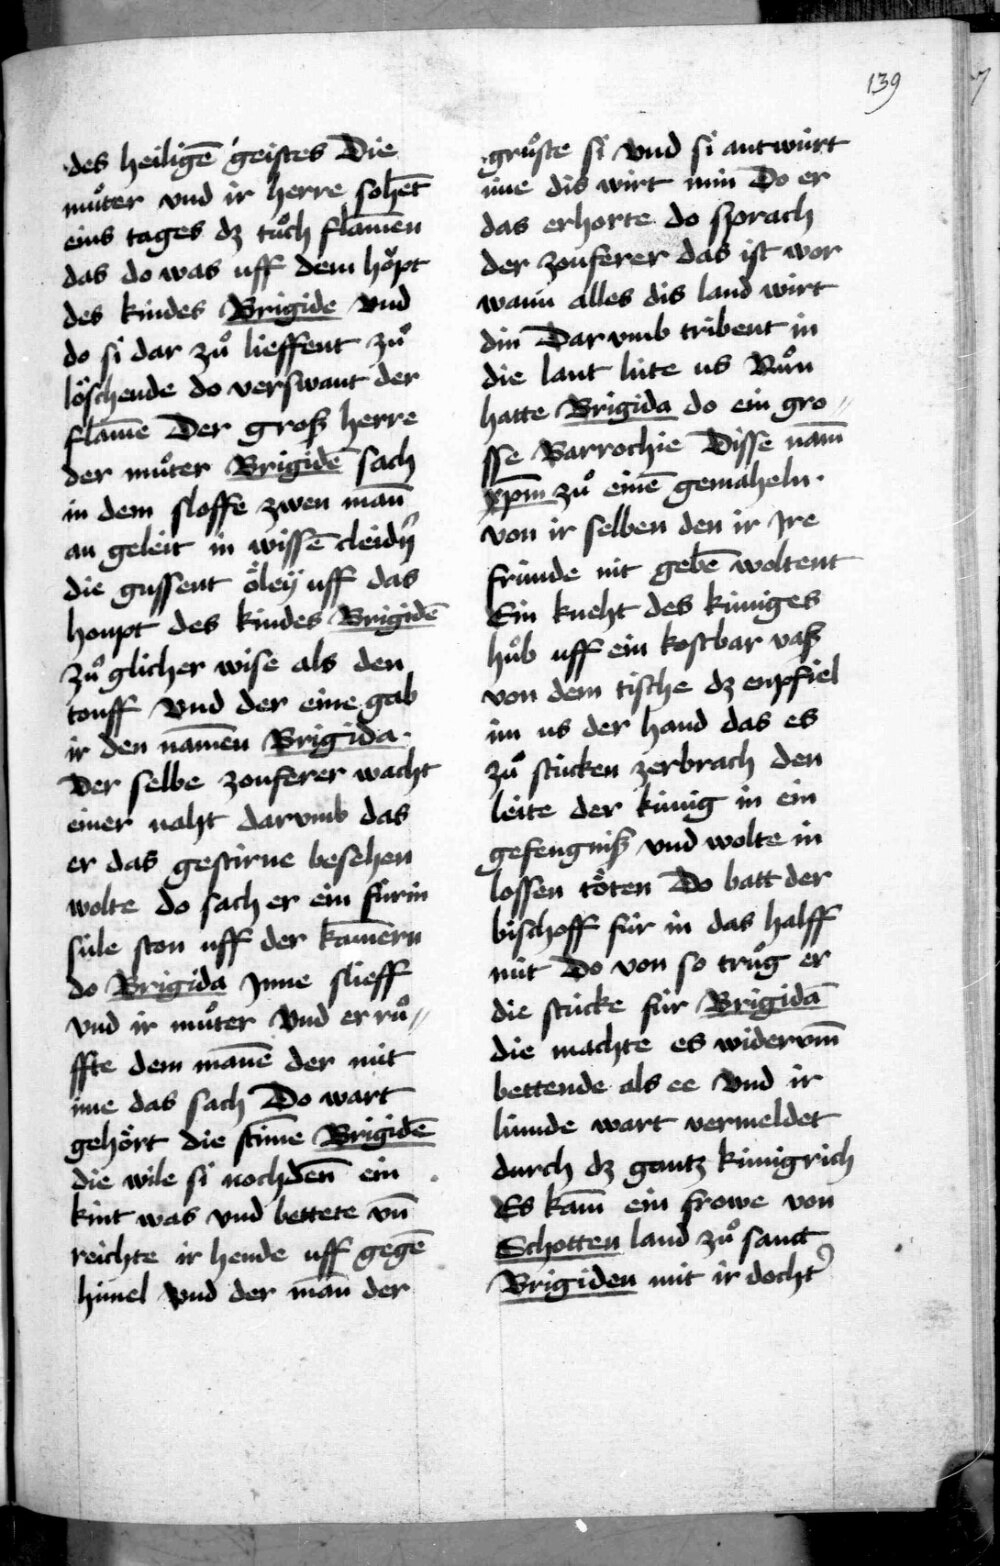 139
des heiligē geistes Die
muͦter vnd ir herre sohēt
eins tages dz tuͦch flamēn
das do was uff dem hoͤpt
des kindes Brigide vnd
do si dar zuͦ lieffent zuͦ
loͤschende do verswant der
flamē Der groß herre
der muͦter Brigidē sach
in dem sloffe zwen man̄
an geleit in wissē cleidn̓
die gussent oͤleÿ uff das
houpt des kindes Brigidē
zuͦ glicher wise als den
touff vnd der eine gab
ir den namēn Brigida.
Der selbe zouferer wacht
einer naht darvmb das
er das gestirne besehen
wolte do sach er ein fúrin
súle ston uff der kamērn
do Brigida Jnne slieff
vnd ir muͦter vnd er ruͦ〃
ffte dem manē der mit
ime das sach Do wart
gehoͤrt die stīme Brigidē
die wile si nochdēn ein
kint was vnd bettete vn̄
reichte ir hende uff gegē
himel vnd der man̄ der
gruͦste si vnd si antwúrt
ime dis wirt min Do er
das erhorte do sprach
der zouferer das ist wor
wann alles dis land wirt
din Dar vmb tribent in
die lant lúte us Nuͦn
hatte Brigida do ein gro〃
sse Barrochie Disse nam̄
xp̄m zuͦ einē gemaheln.
von ir selben den ir Jre
frúnde nit gebē woltent
Ein kneht des kúniges
huͦb uff ein kostbar vaß
von dem tische dz enpfiel
im us der hand das es
zuͦ stúcken zerbrach den
leite der kúnig in ein
gefengniß vnd wolte in
lossen toͤten Do batt der
bischoff fúr in das halff
nút Do von so truͦg er
die stúcke fúr Brigidā
die machte es widervm̄
bettende als ee vnd ir
lúmde wart vermeldet
durch dz gantz kúnigrich
Es kam̄ ein frowe von
Schotten land zuͦ sanct
Brigiden mit ir docht̓